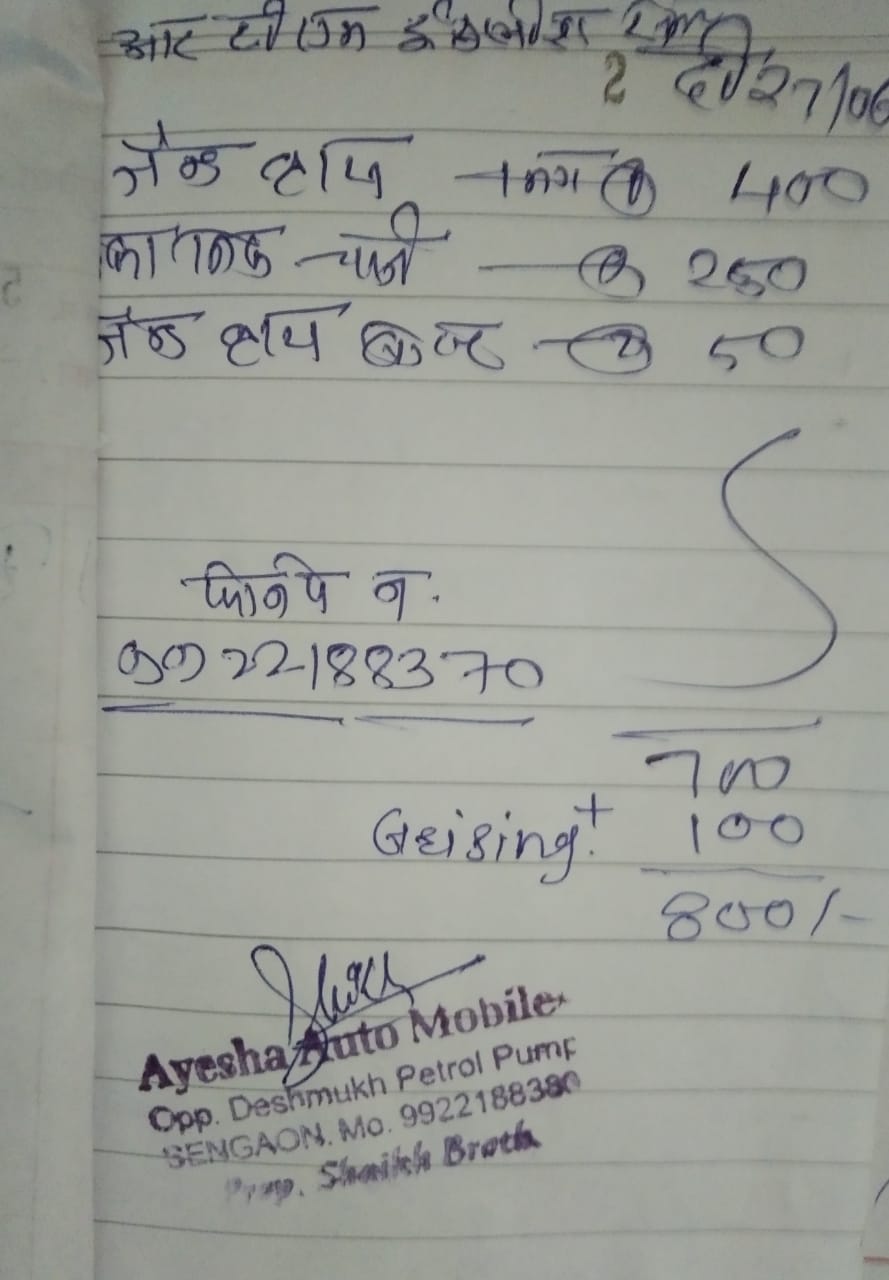 आर टी एम इंग्लीश
2 दि 27/06
जॅक टाप 1 नग 400
250
जॅक टाप 50
फोनपे न.
9922188370
700
Geising. + 100
800/-
Ayesha Auto Mobile
Opp. Deshmukh Petrol Pump
SENGAON. Mo. 9922188380
Prop. Shaikh